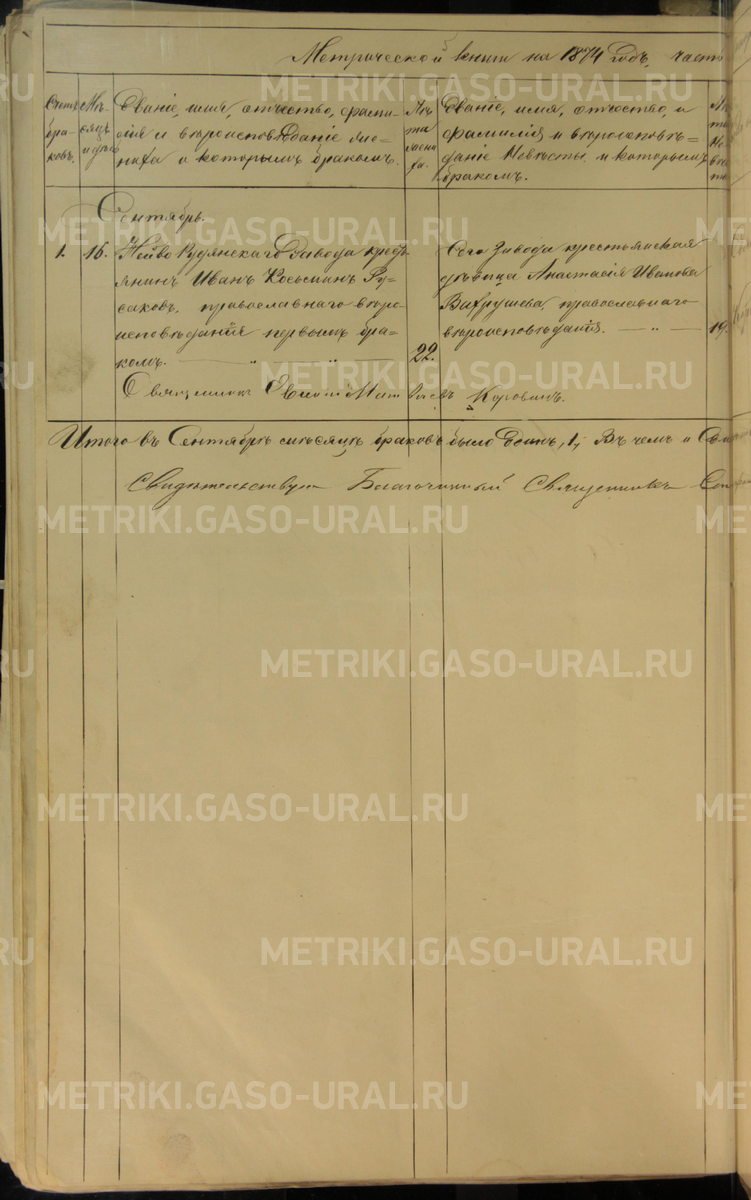 Метрической книги на 1874 годъ, часть
Счетъ бра- ковъ.
Мѣ- сяцъ и день
Званіе, имя, отчество, фами-
лія и вѣроисповѣданіе же-
ниха и которымъ бракомъ.
Лѣ- та жени- ха.
Званіе, имя, отчество, и
фамилія и вѣроисповѣ-
даніе невѣсты и которымъ
бракомъ.
Лѣ- та не- вѣ- сты
Сентябрь.
1. 16. Нейво Рудянскаго Завода кресть-
янинъ Иванъ Косьминъ Ру-
саковъ, православнаго вѣро-
исповѣданія первымъ бра-
комъ. — „ — „ — 22.
Сего Завода крестьянская
дѣвица Анастасія Иванова
Вахрушева, православнаго
вѣроисповѣданія. — „ — 19.
Священникъ Коровинъ.
Итого въ Сентябрѣ мѣсяцѣ браковъ было Одинъ, 1, Въ чемъ и
Свидѣтельствую Благочинный Священникъ
METRIKI.GASO-URAL.RU